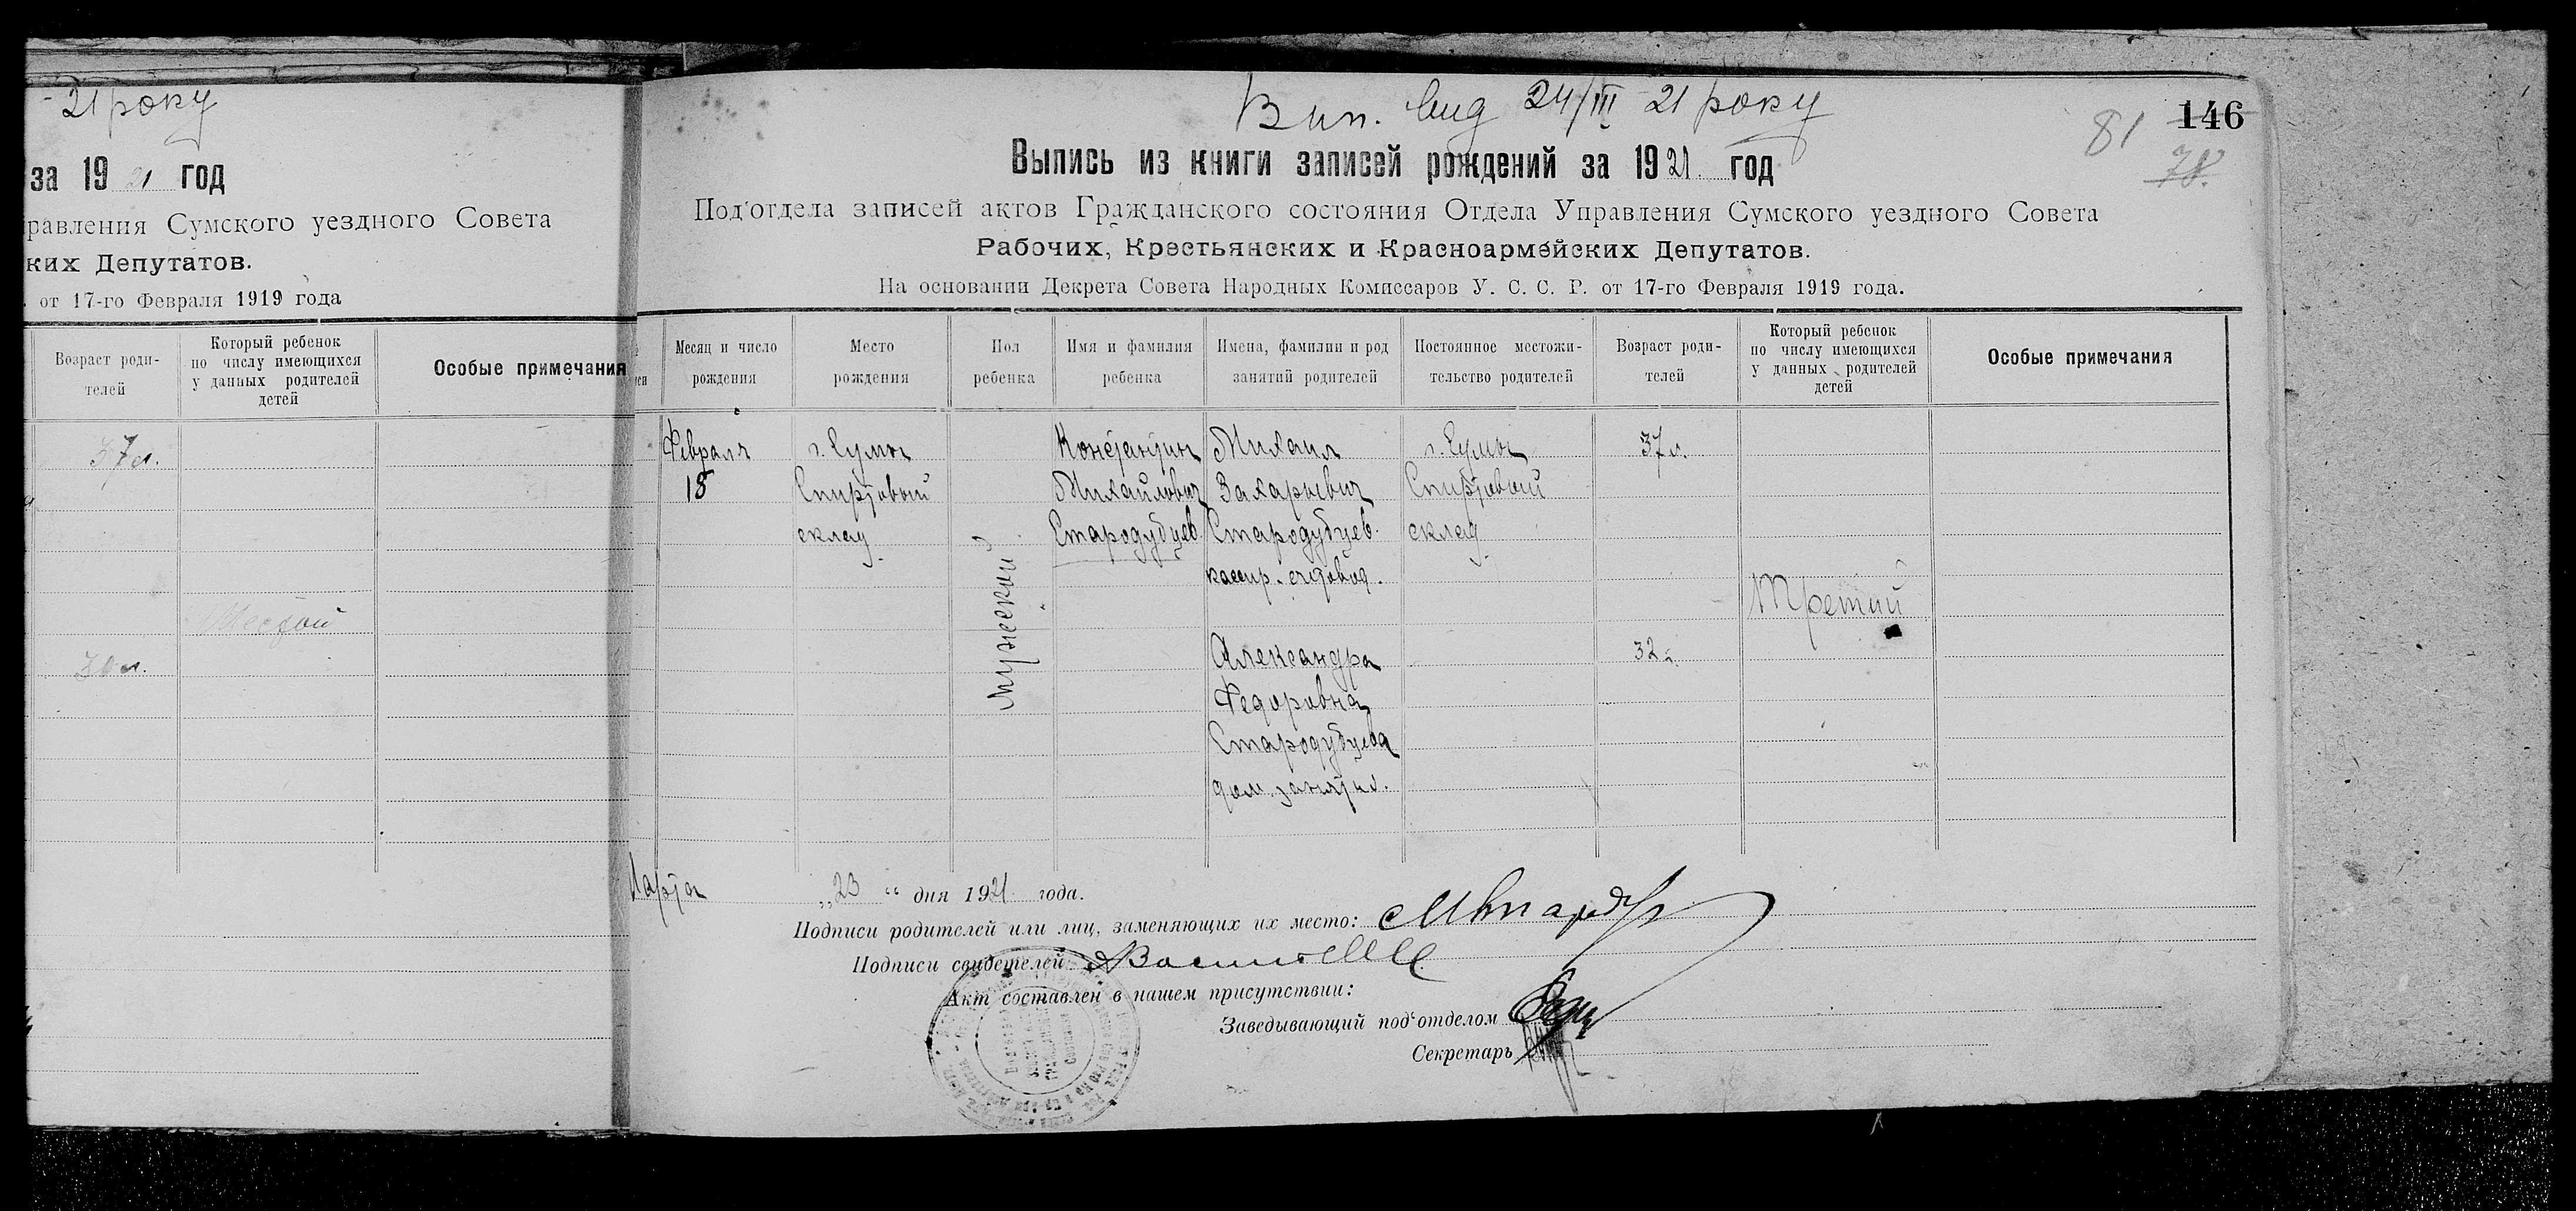 -21 року
за 1921 год
равления Сумского уездного Совета
ких Депутатов.
от 17-го Февраля 1919 года
Возраст роди-
телей
Который ребенок
по числу имеющихся
у данных родителей
детей
Особые примечания
37 л.
Шестой
30 л.
Вип. вид 24/III 21 року
146
81
78.
Выпись из книги записей рождений за 1921 год
Под'отдела записей актов Гражданского состояния Отдела Управления Сумского уездного Совета
Рабочих, Крестьянских и Красноармейских Депутатов.
На основании Декрета Совета Народных Комиссаров У. С. С. Р. от 17-го Февраля 1919 года.
Месяц и число
рождения
Место
рождения
Пол
ребенка
Имя и фамилия
ребенка
Имена, фамилии и род
занятий родителей
Постоянное местожи-
тельство родителей
Возраст роди-
телей
Который ребенок
по числу имеющихся
у данных родителей
детей
Особые примечания
Февраля
18
г. Сумы
Спиртовый
склад
Мужеский
Константин
Михайлович
Стародубцев.
Михаил
Захарьевич
Стародубцев.
кассир. счетовод.
Александра
Федоровна
Стародубцева
дом. занятия.
г. Сумы
Спиртовый
склад
37 л.
32 л.
Третий
Марта „23 “ дня 1921 года.
Подписи родителей или лиц, заменяющих их место:
Подписи свидетелей
Акт составлен в нашем присутствии:
Заведывающий под‘отделом
Секретарь